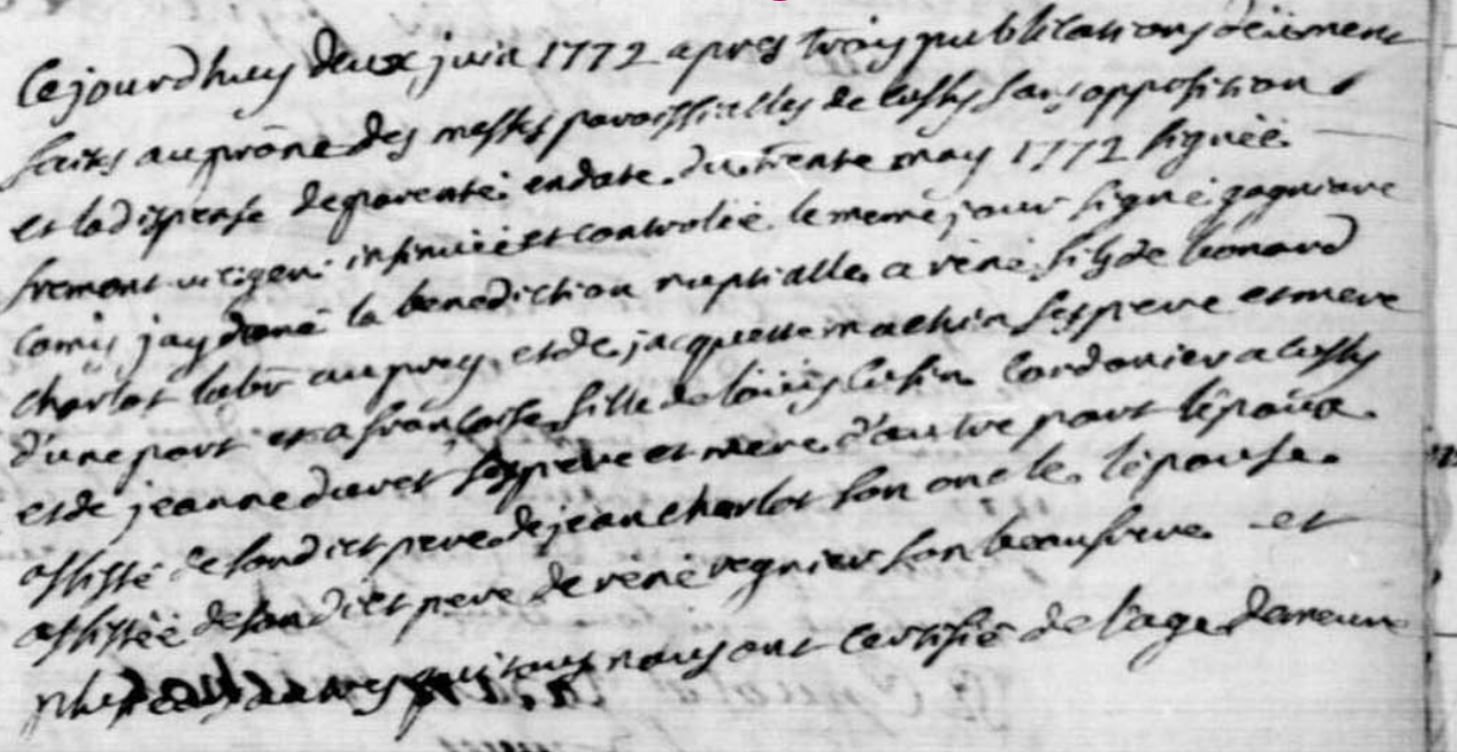 Cejourdhuy deux juin 1772 apres trois publications deüement
faites au prône des messes paroissialles de sans opposition
et la dispense de parenté en date du trente may 1772 signée
fremont vic gen insinuée et controlée le meme jour signé gagniare
comis jay doné la benediction nuptialle a réné fils de leonard
charlot labr au prey et de jacquette machin ses pere et mere
d'une part et a françoise fille de loüis cordonier a
et de jeanne duret ses pere et mere d'autre part lépoux
assisté de sondict pere de jean charlot son oncle lépouse
assistée de sondict pere de réné regnier son beaufrere et
plusieurs autres qui tous nous ont certifié de lage demeure